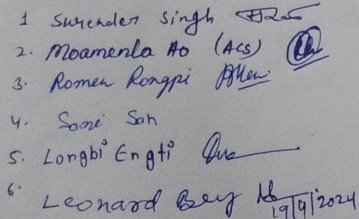 1 Surender Singh
2. Moamenla Ao (ACS)
3. Romen Rongpi
4. Soni Son
5. Longbi Engti
6. Leonard Bey 19/9/2024